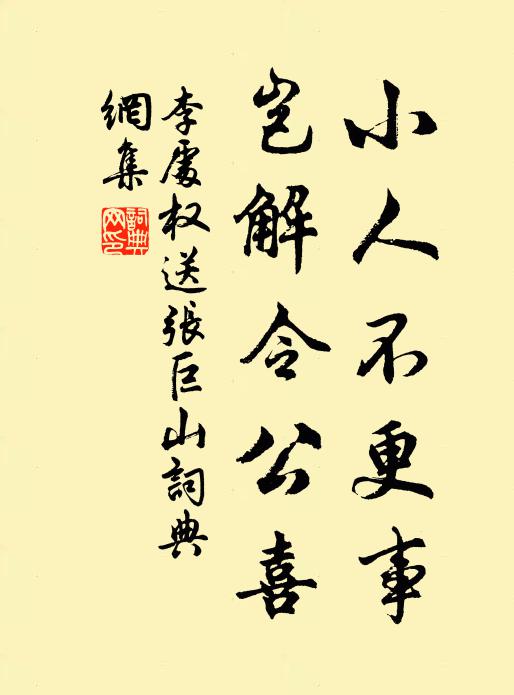 小人不更事
豈解令公喜
李處权送張巨山詞典
網集
詞典
网印